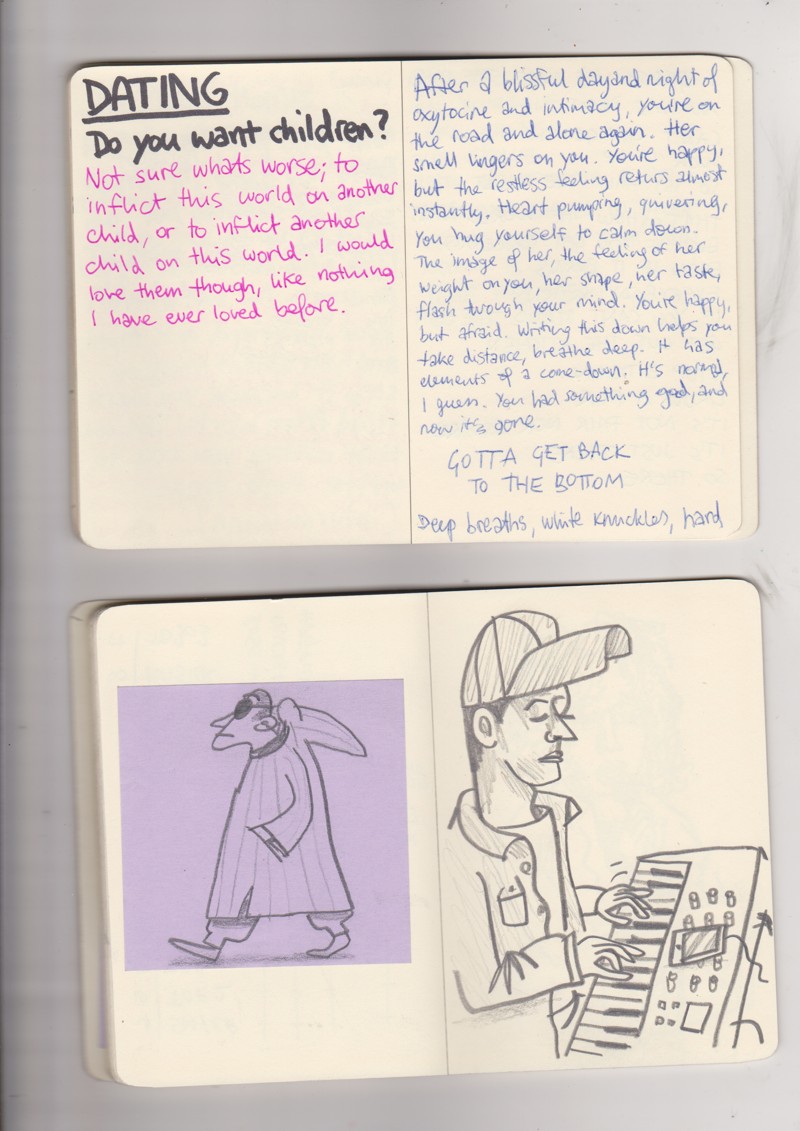 DATING
Do you want children?
Not sure whats worse; to
inflict this world on another
child, or to inflict another
child on this world. I would
love them though, like nothing
I have ever loved before.
After a blissful day and night of
oxytocine and intimacy, you're on
the road and alone again. Her
smell lingers on you. You're happy,
but the restless feeling returs almost
instantly. Heart pumping, quivering,
you hug yourself to calm down.
The image of her, the feeling of her
weight on you, her shape, her taste,
flash through your mind. You're happy,
but afraid. Writing this down helps you
take distance, breathe deep. It has
elements of a come-down. It's normal,
I guess. You had something good, and
now it's gone.
GOTTA GET BACK
TO THE BOTTOM
Deep breaths, white knuckles, hard